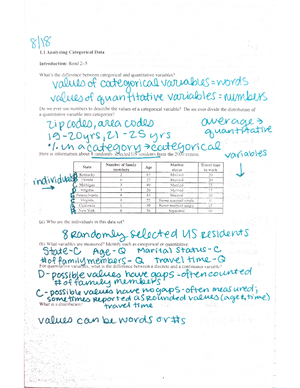 8/18
1.1 Analyzing Categorical Data
Introduction: Read 2-5
What's the difference between categorical and quantitative variables?
values of categorical variables = words
values of quantitative variables = numbers
Do we ever use numbers to describe the values of a categorical variable? Do we ever divide the distribution of
a quantitative variable into categories?
zip codes, area codes
10-20yrs, 21-25 yrs
average → quantitative
% in a category → categorical
Here is information about 8 randomly selected US residents from the 2000 census.
variables
individuals
State Number of family members Age Marital status Travel time to work
Kentucky
Florida
Michigan
Virginia
Pennsylvania
Virginia
California
New York
(a) Who are the individuals in this data set?
8 Randomly selected US residents
(b) What variables are measured? Identify each as categorical or quantitative.
State-C Age-Q Marital Status-C
# of family members - Q travel time - Q
For quantitative variables, what is the difference between a discrete and a continuous variable?
D-possible values have gaps - often counted
# of family members
C-possible values have no gaps - often measured;
sometimes reported as rounded values (age, time)
travel time
What is a distribution?
values can be words or #s